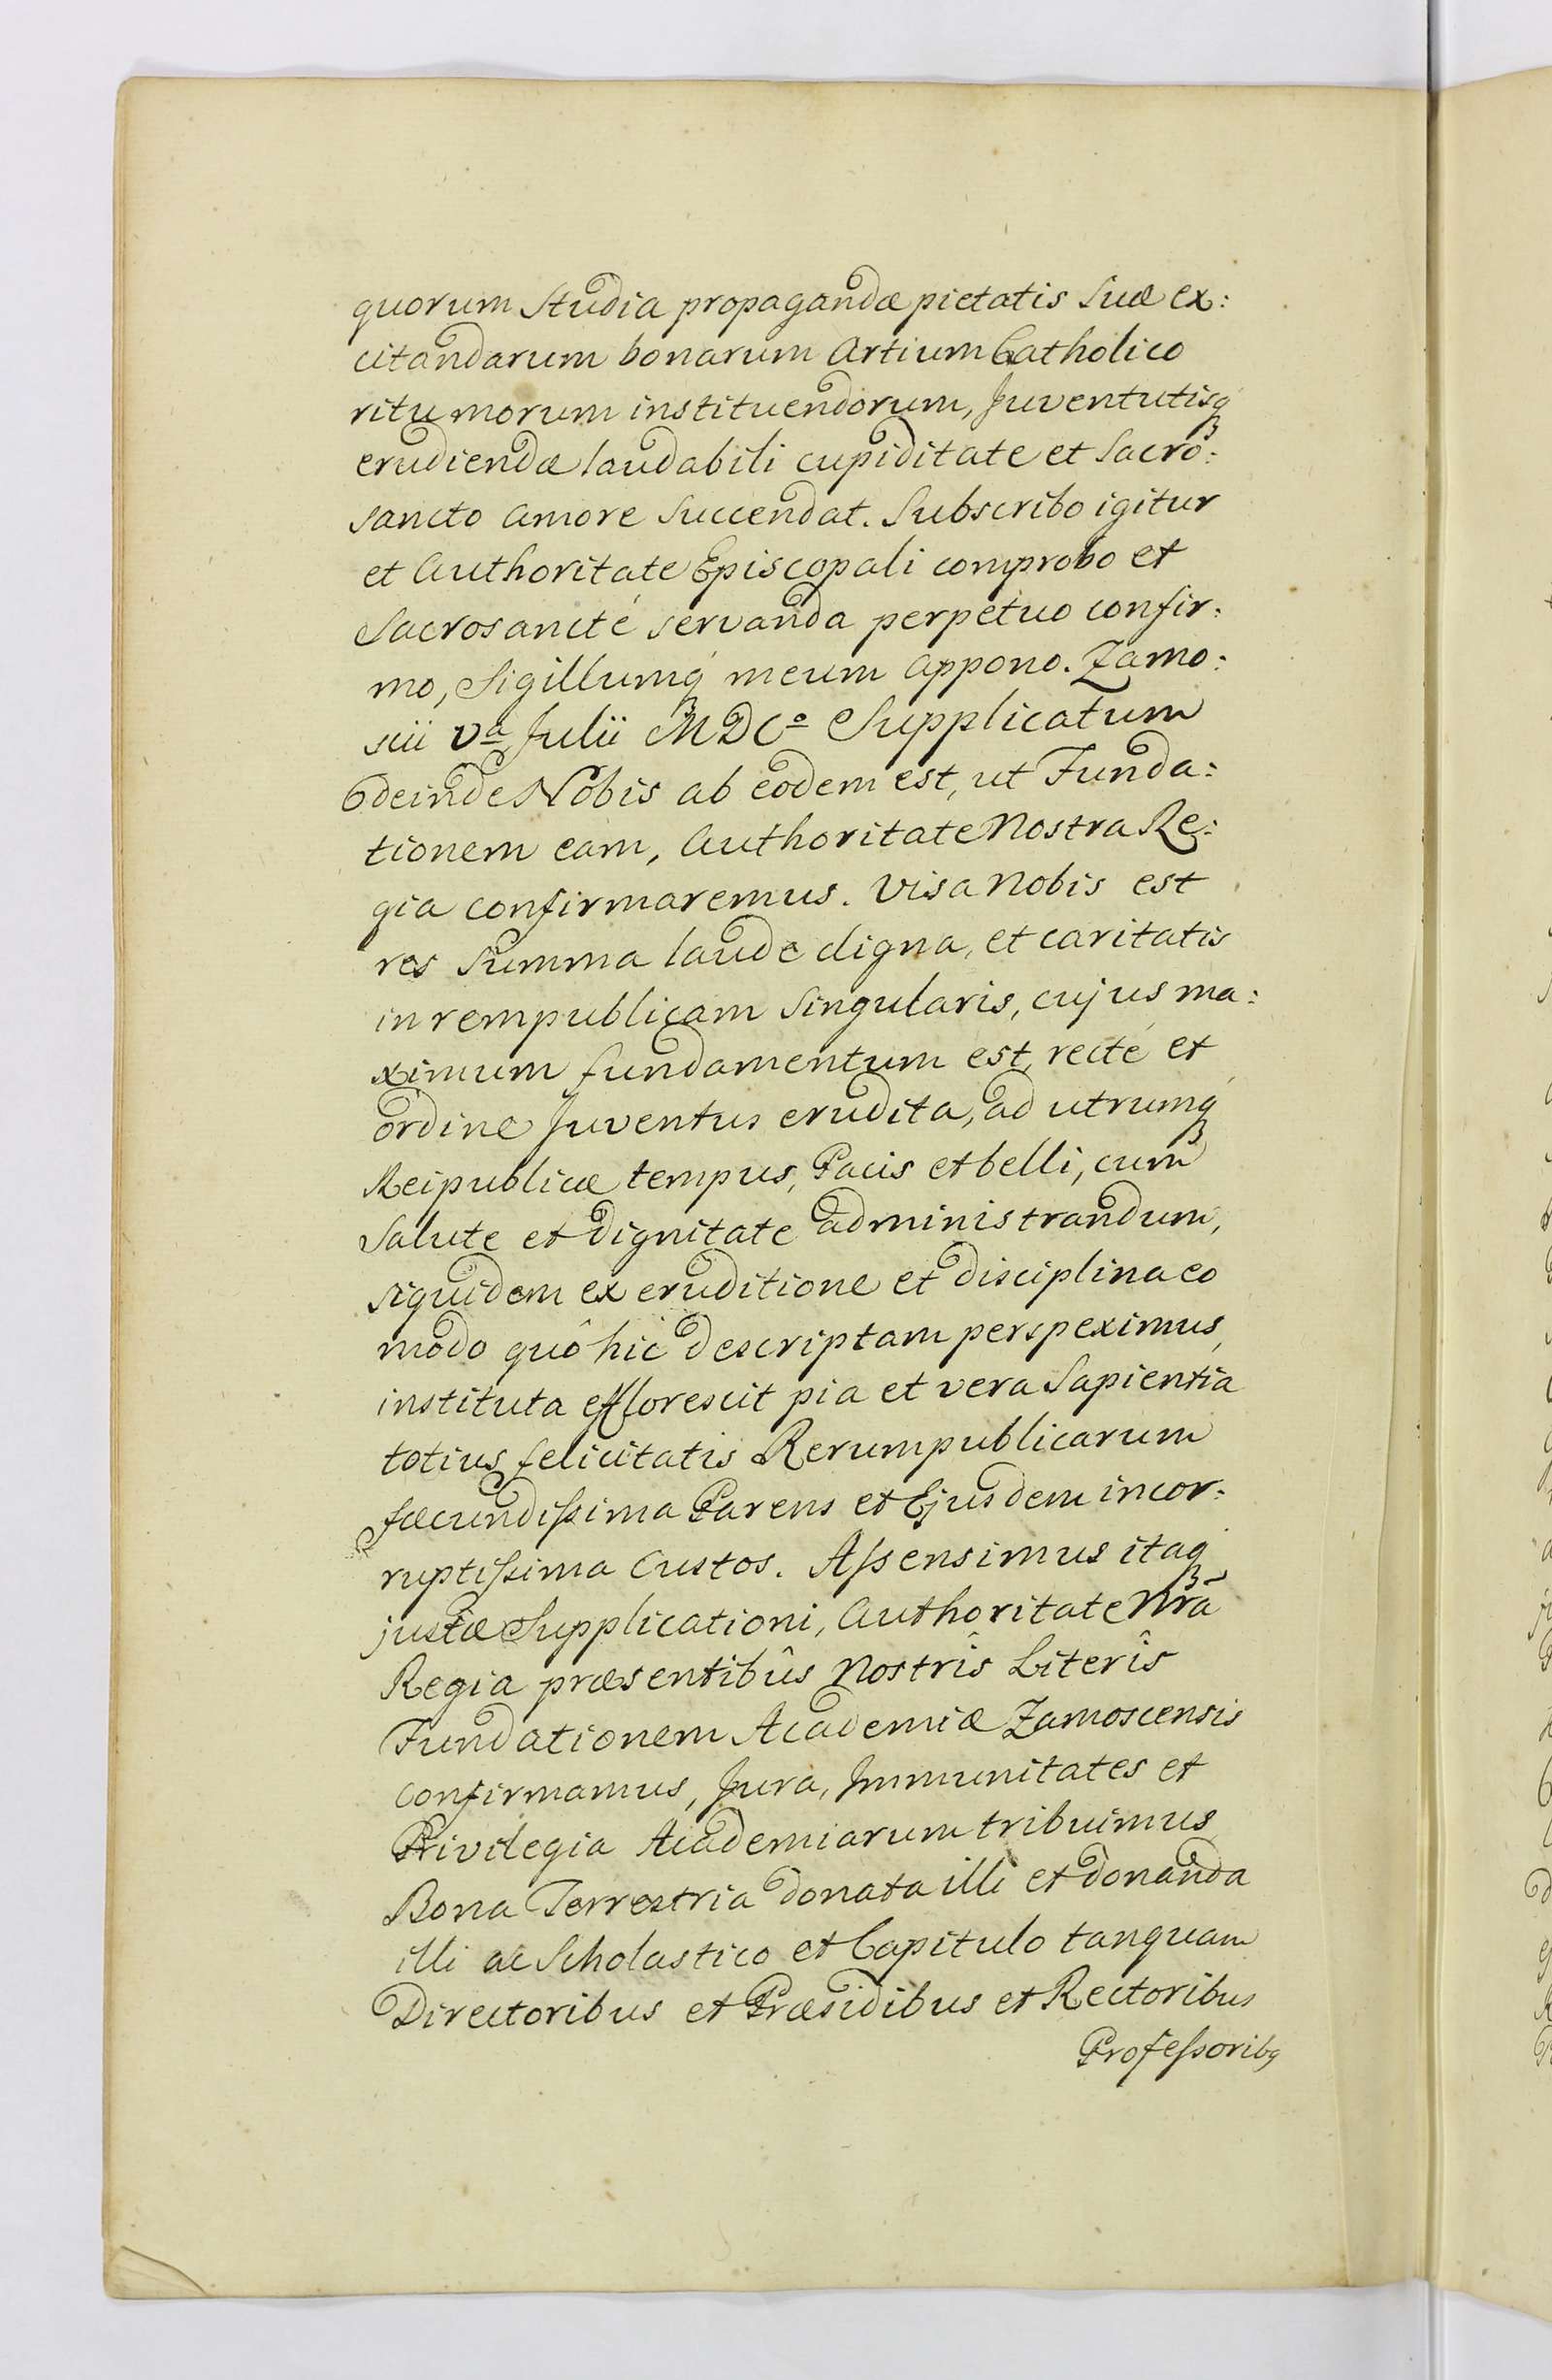 quorum Studia propagandæ pietatis suæ ex:
citandarum bonarum Artium Catholico
ritu morum instituendorum, Juventutisq́ꝫ
erudiendæ laudabili cupiditate et Sacro:
sancto Amore succendat. Subscribo igitur
et Authoritate Episcopali comprobo et
Sacrosancté servanda perpetuo confir:
mo, Sigillumq́ꝫ meum Appono. Zamo:
scii Vª Julii MDCº Supplicatum
deinde Nobis ab eodem est, ut Funda:
tionem eam, Authoritate Nostra Re:
gia confirmaremus. Visa Nobis est
res summa laude digna, et caritatis
in rempublicam singularis, cujus ma:
ximum fundamentum est, recté et
ordine Juventus erudita, ad utrumq́ꝫ
Reipublicæ tempus, Pacis et belli, cum
Salute et dignitate administrandum,
siquidem ex eruditione et disciplina eo
modo quô hic descriptam perspeximus,
instituta efflorescit pia et vera Sapientia
totius felicitatis Rerumpublicarum
fæcundiſsima Parens et Ejusdem incor:
ruptiſsima Custos. Aſsensimus itaq́ꝫ
justæ Supplicationi, Authoritate Nrã
Regia præsentibûs Nostrîs Literîs
Fundationem Academiæ Zamoscensis
confirmamus, Jura, Jmmunitates et
Privilegia Academiarum tribuimus,
Bona Terrestria donata illi et donanda
illi ac Scholastico et Capitulo tanquam
Directoribus et Præsidibus et Rectoribus
Profeſsoribꝯ